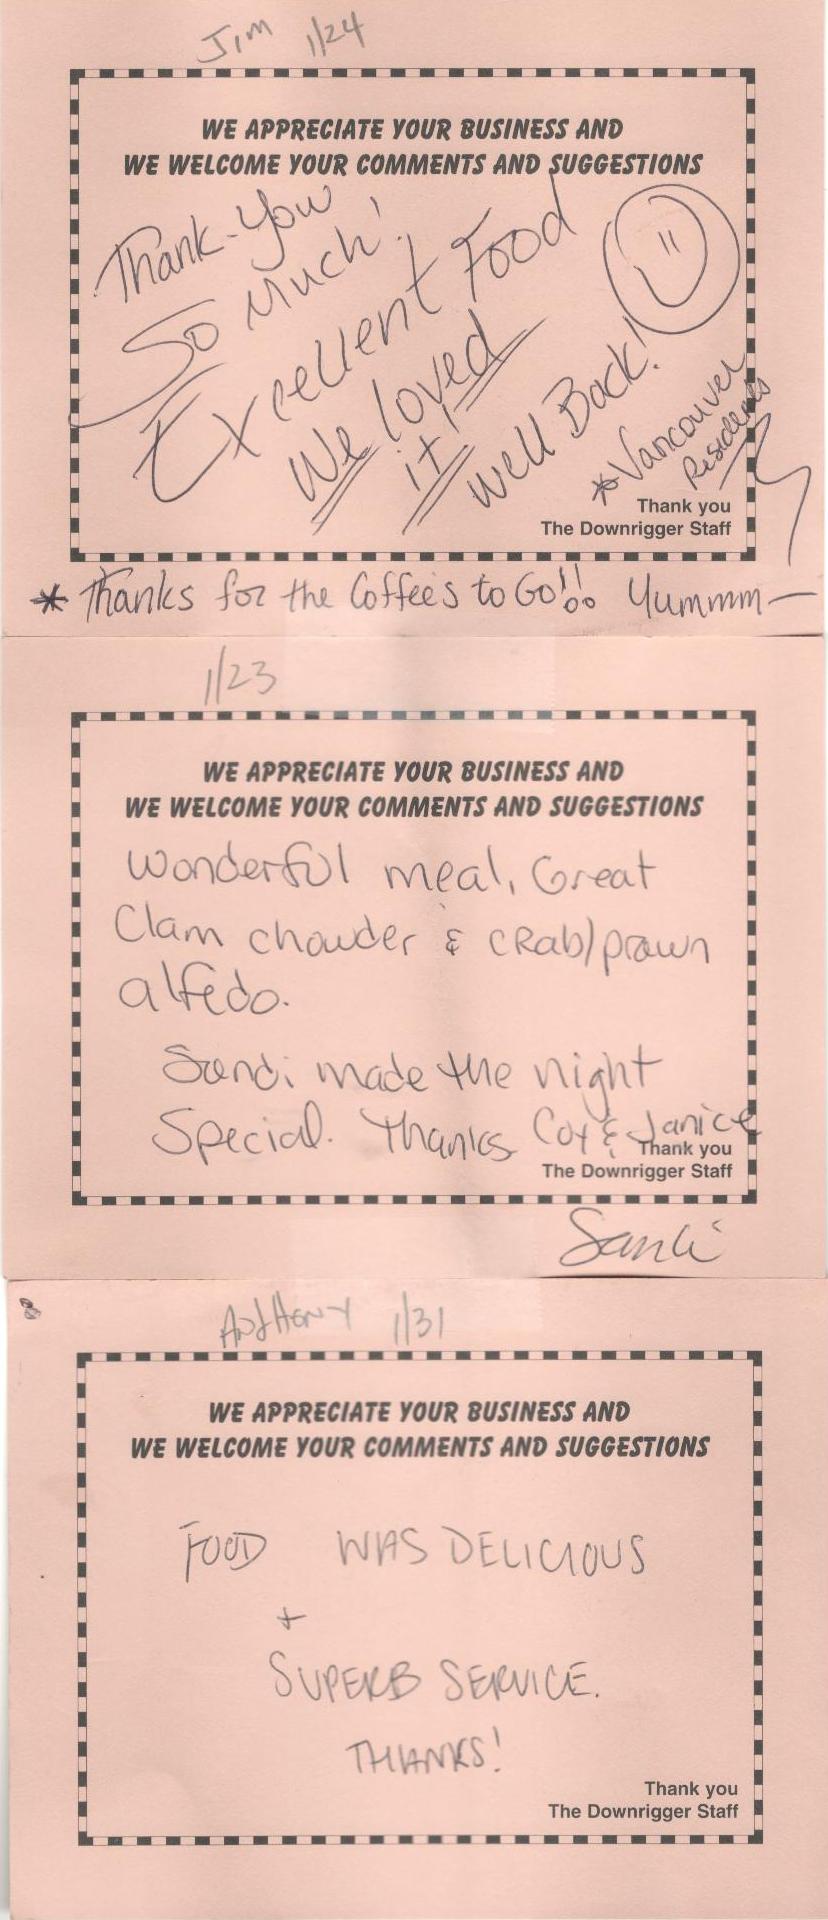 Jim 1/24
WE APPRECIATE YOUR BUSINESS AND
WE WELCOME YOUR COMMENTS AND SUGGESTIONS
Thank-You
So Much!
Excellent Food
We loved
it!
Well Back!
*Vancouver
Residents
Thank you
The Downrigger Staff
* Thanks for the Coffee's to Go!! Yummm—
1/23
WE APPRECIATE YOUR BUSINESS AND
WE WELCOME YOUR COMMENTS AND SUGGESTIONS
Wonderful meal, Great
Clam chowder & cRab/prawn
alfedo.
Sandi made the night
Special. Thanks Coy & Janice
Thank you
The Downrigger Staff
Sandi
Anthony 1/31
WE APPRECIATE YOUR BUSINESS AND
WE WELCOME YOUR COMMENTS AND SUGGESTIONS
FOOD WAS DELICIOUS
+
SUPERB SERVICE.
THANKS!
Thank you
The Downrigger Staff